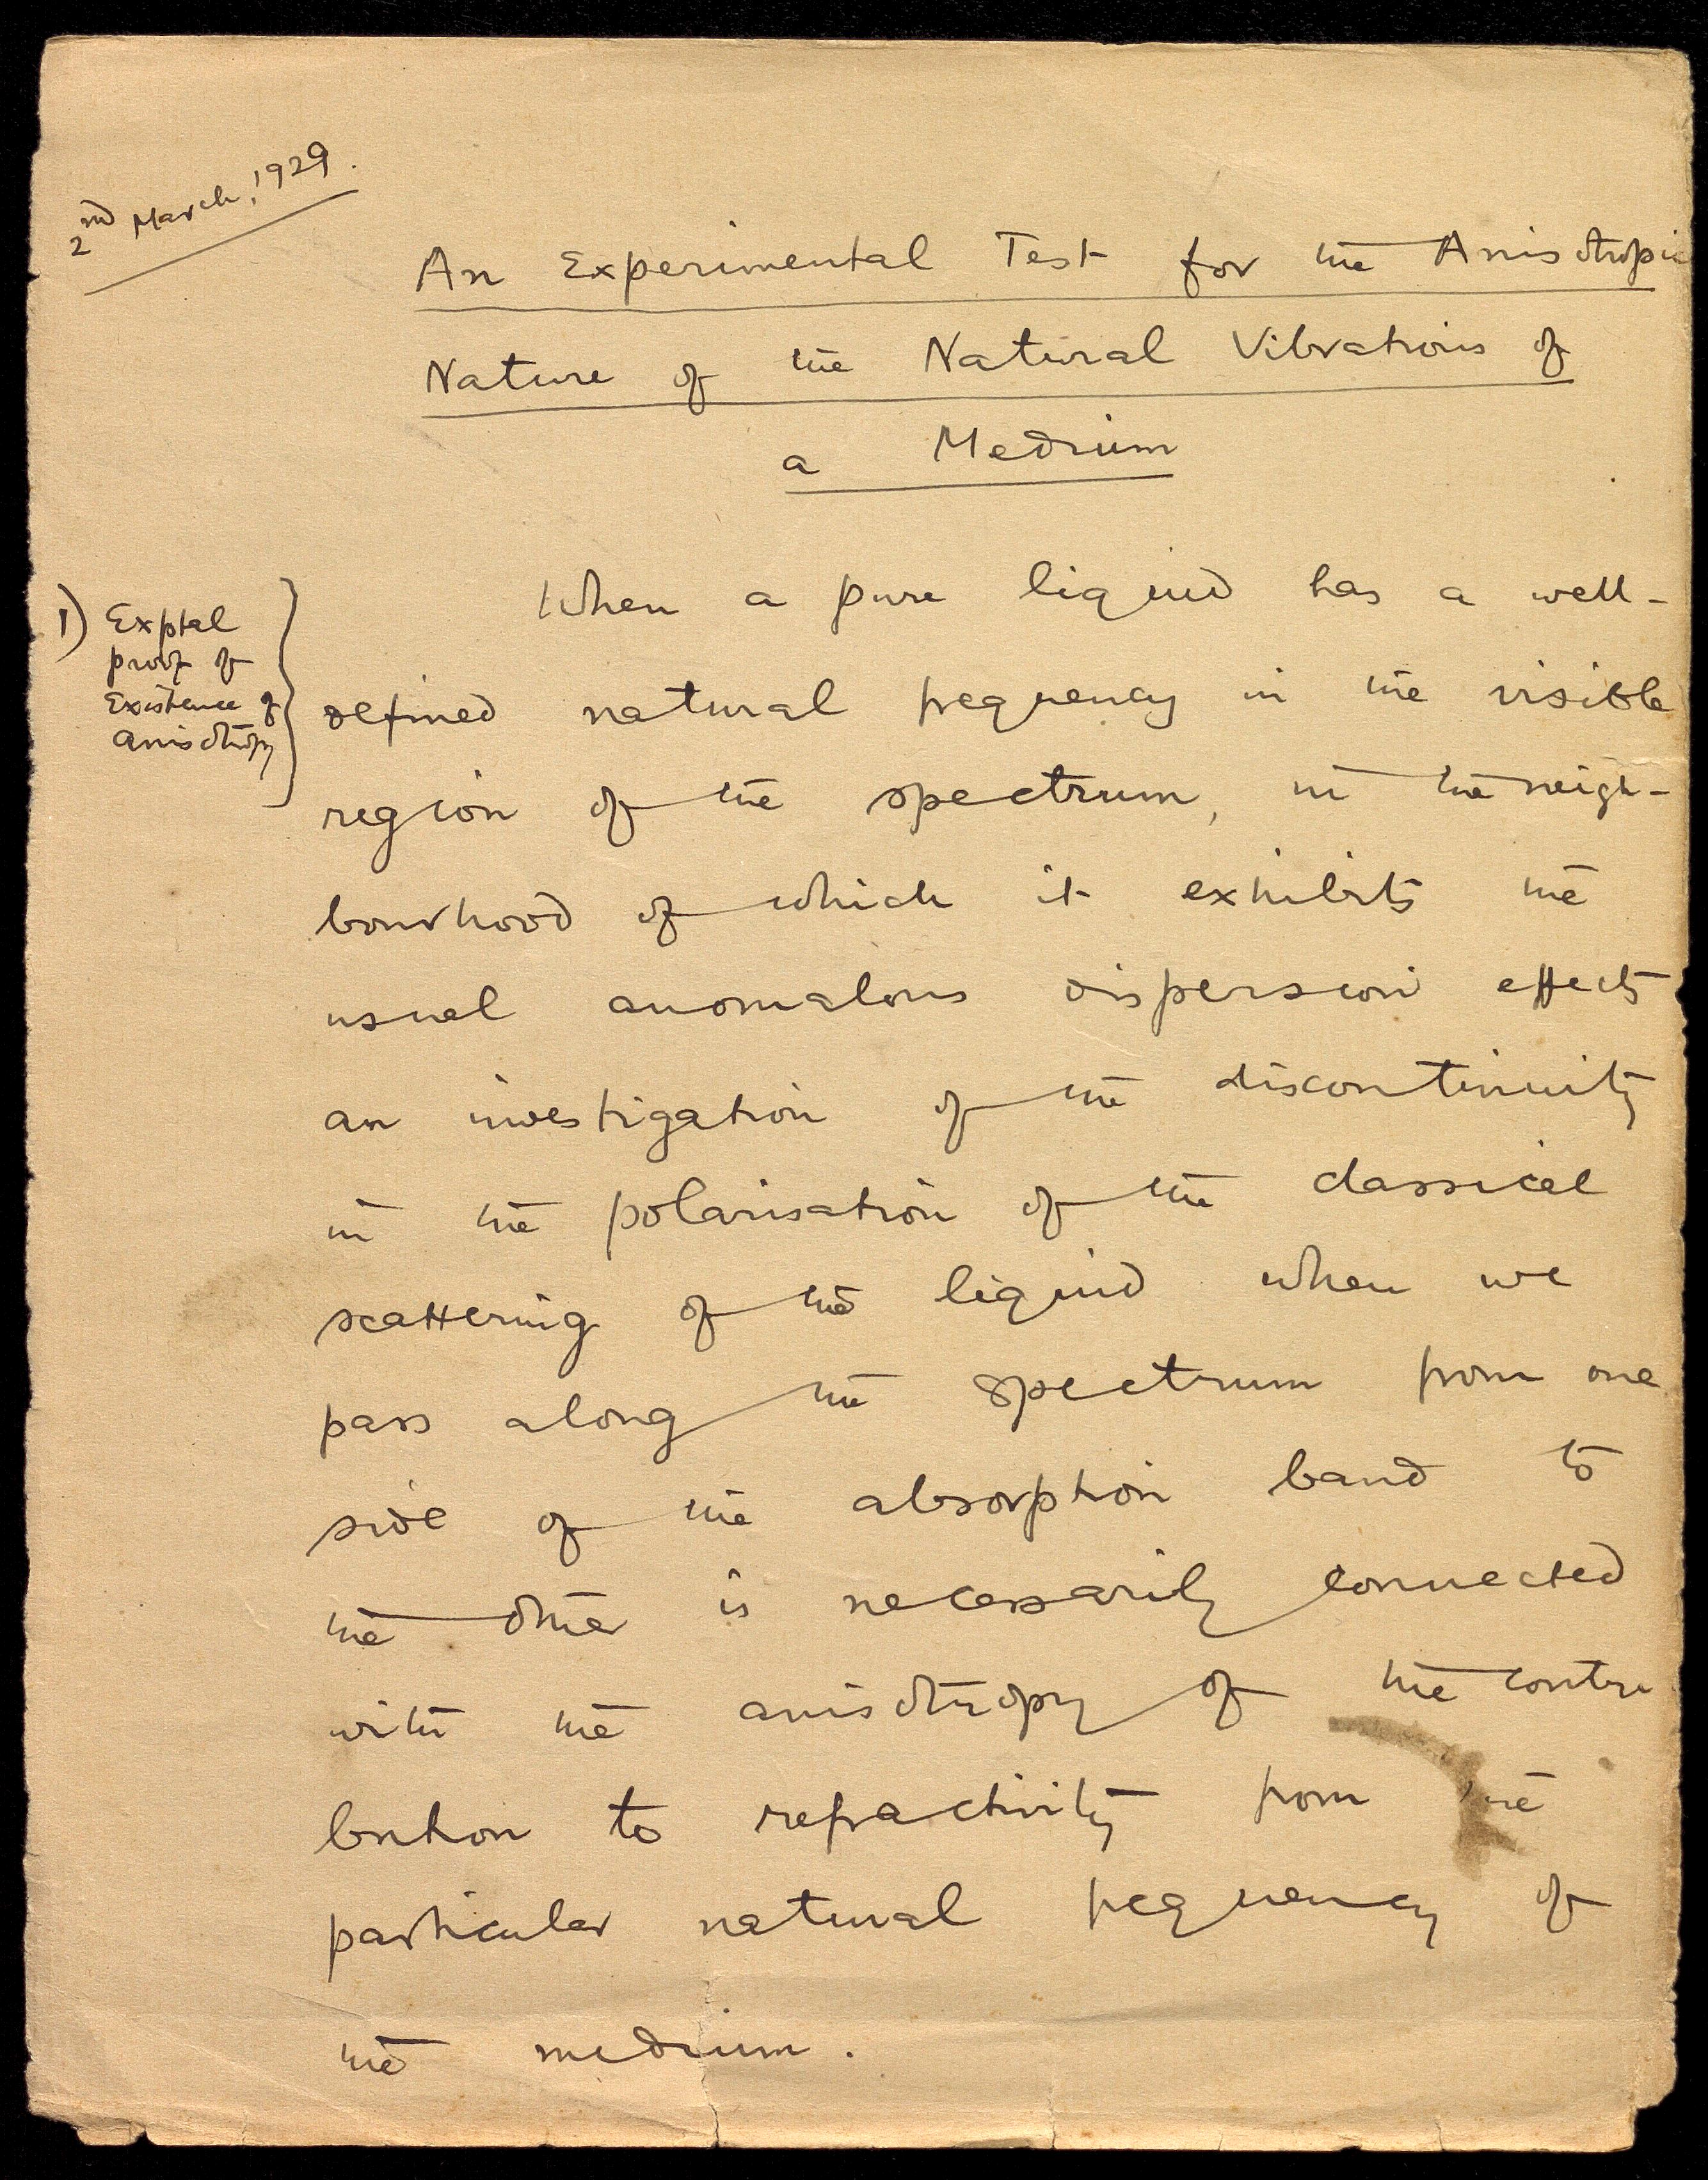 2nd March, 1929.
An Experimental Test for the Anisotropic
Nature of the Natural Vibrations of
a Medium
1) Exptal
proof of
Existence of
anisotropy
When a pure liquid has a well-
defined natural frequency in the visible
region of the spectrum, in the neigh-
bourhood of which it exhibits the
usual anomalous dispersion effects
an investigation of the discontinuity
in the polarisation of the classical
scattering of the liquid when we
pass along the spectrum from one
side of the absorption band to
the other is necessarily connected
with the anisotropy of the contri
bution to refractivity from the
particular natural frequency of
the medium.